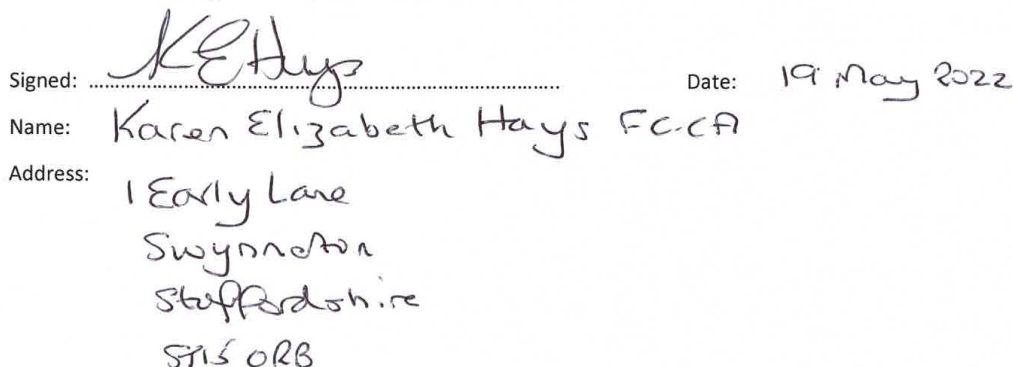 Signed: K E Hays Date: 19 May 2022
Name: Karen Elizabeth Hays FCCA
Address:
1 Early Lane
Swynnerton
Staffordshire
ST15 0RB